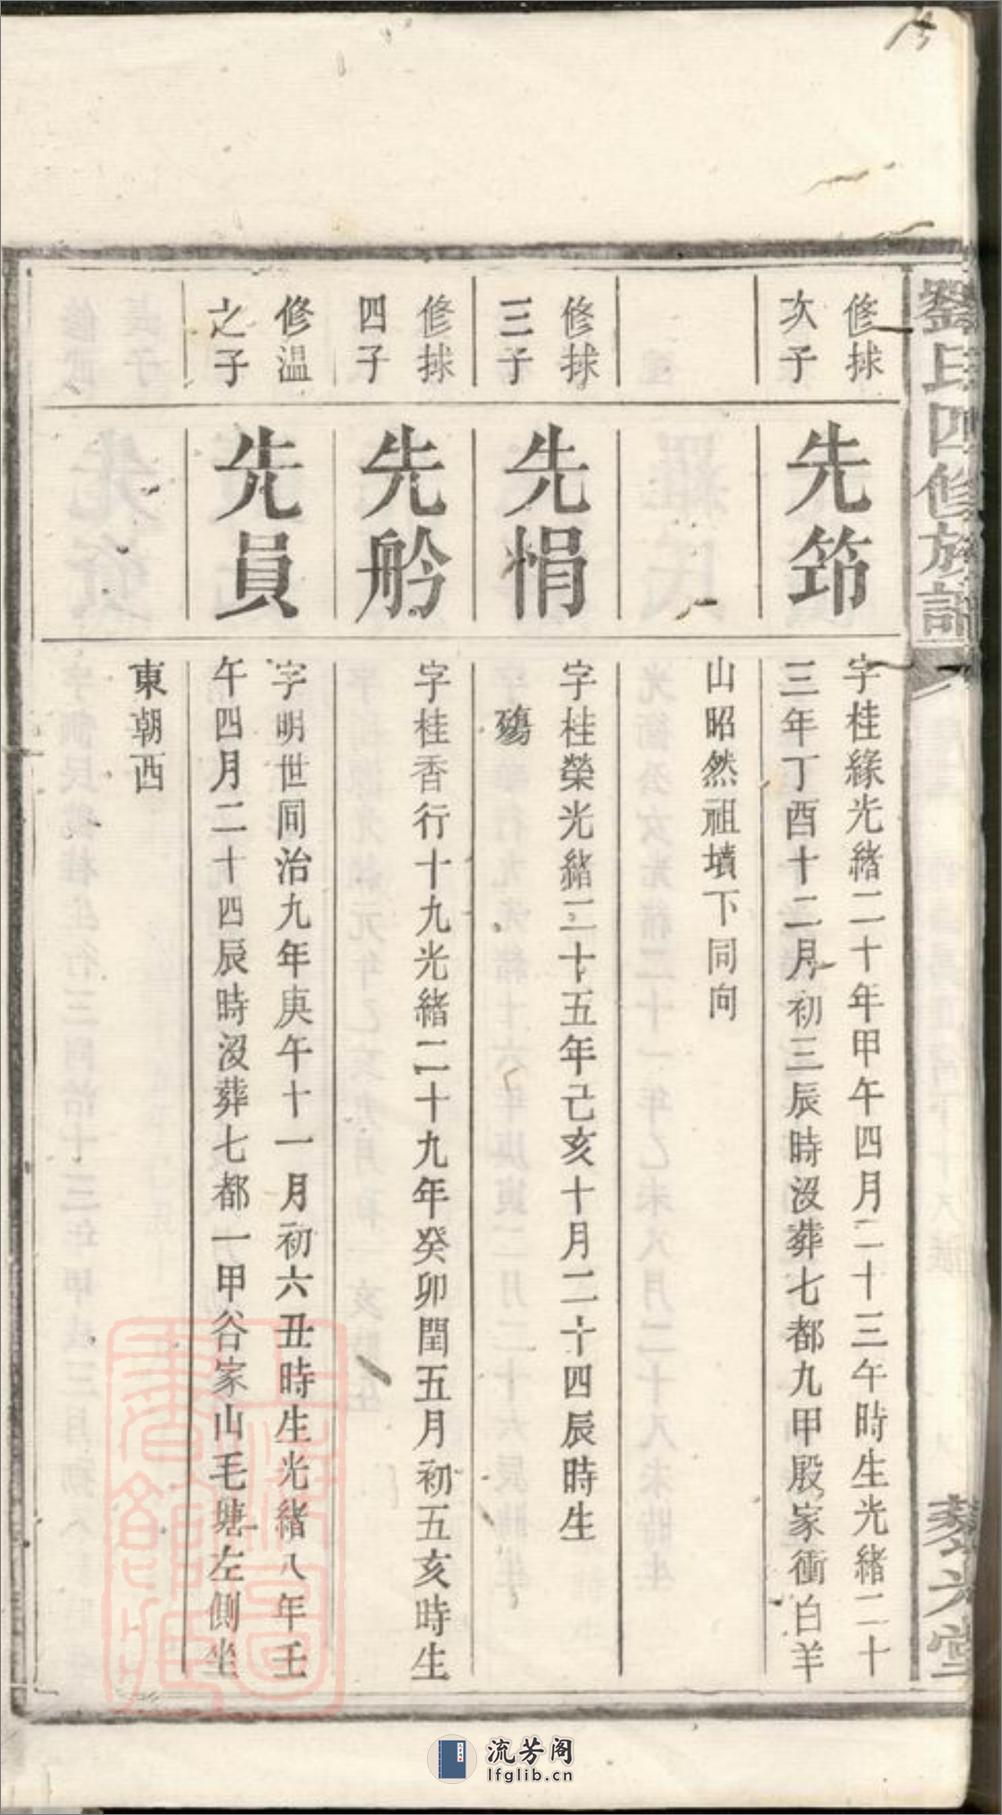 劉氏四修族譜
修捄
次子
先筇
字桂緣光緒二十年甲午四月二十三午時生光緒二十
三年丁酉十二月初三辰時沒葬七都九甲殷家衝白羊
山昭然祖墳下同向
修捄
三子
先悁
字桂榮光緒二十五年己亥十月二十四辰時生
殤
修捄
四子
先舲
字桂香行十九光緒二十九年癸卯閏五月初五亥時生
修溫
之子
先員
字明世同治九年庚午十一月初六丑時生光緒八年壬
午四月二十四辰時沒葬七都一甲谷家山毛塘左側坐
東朝西
流芳阁
lfglib.cn